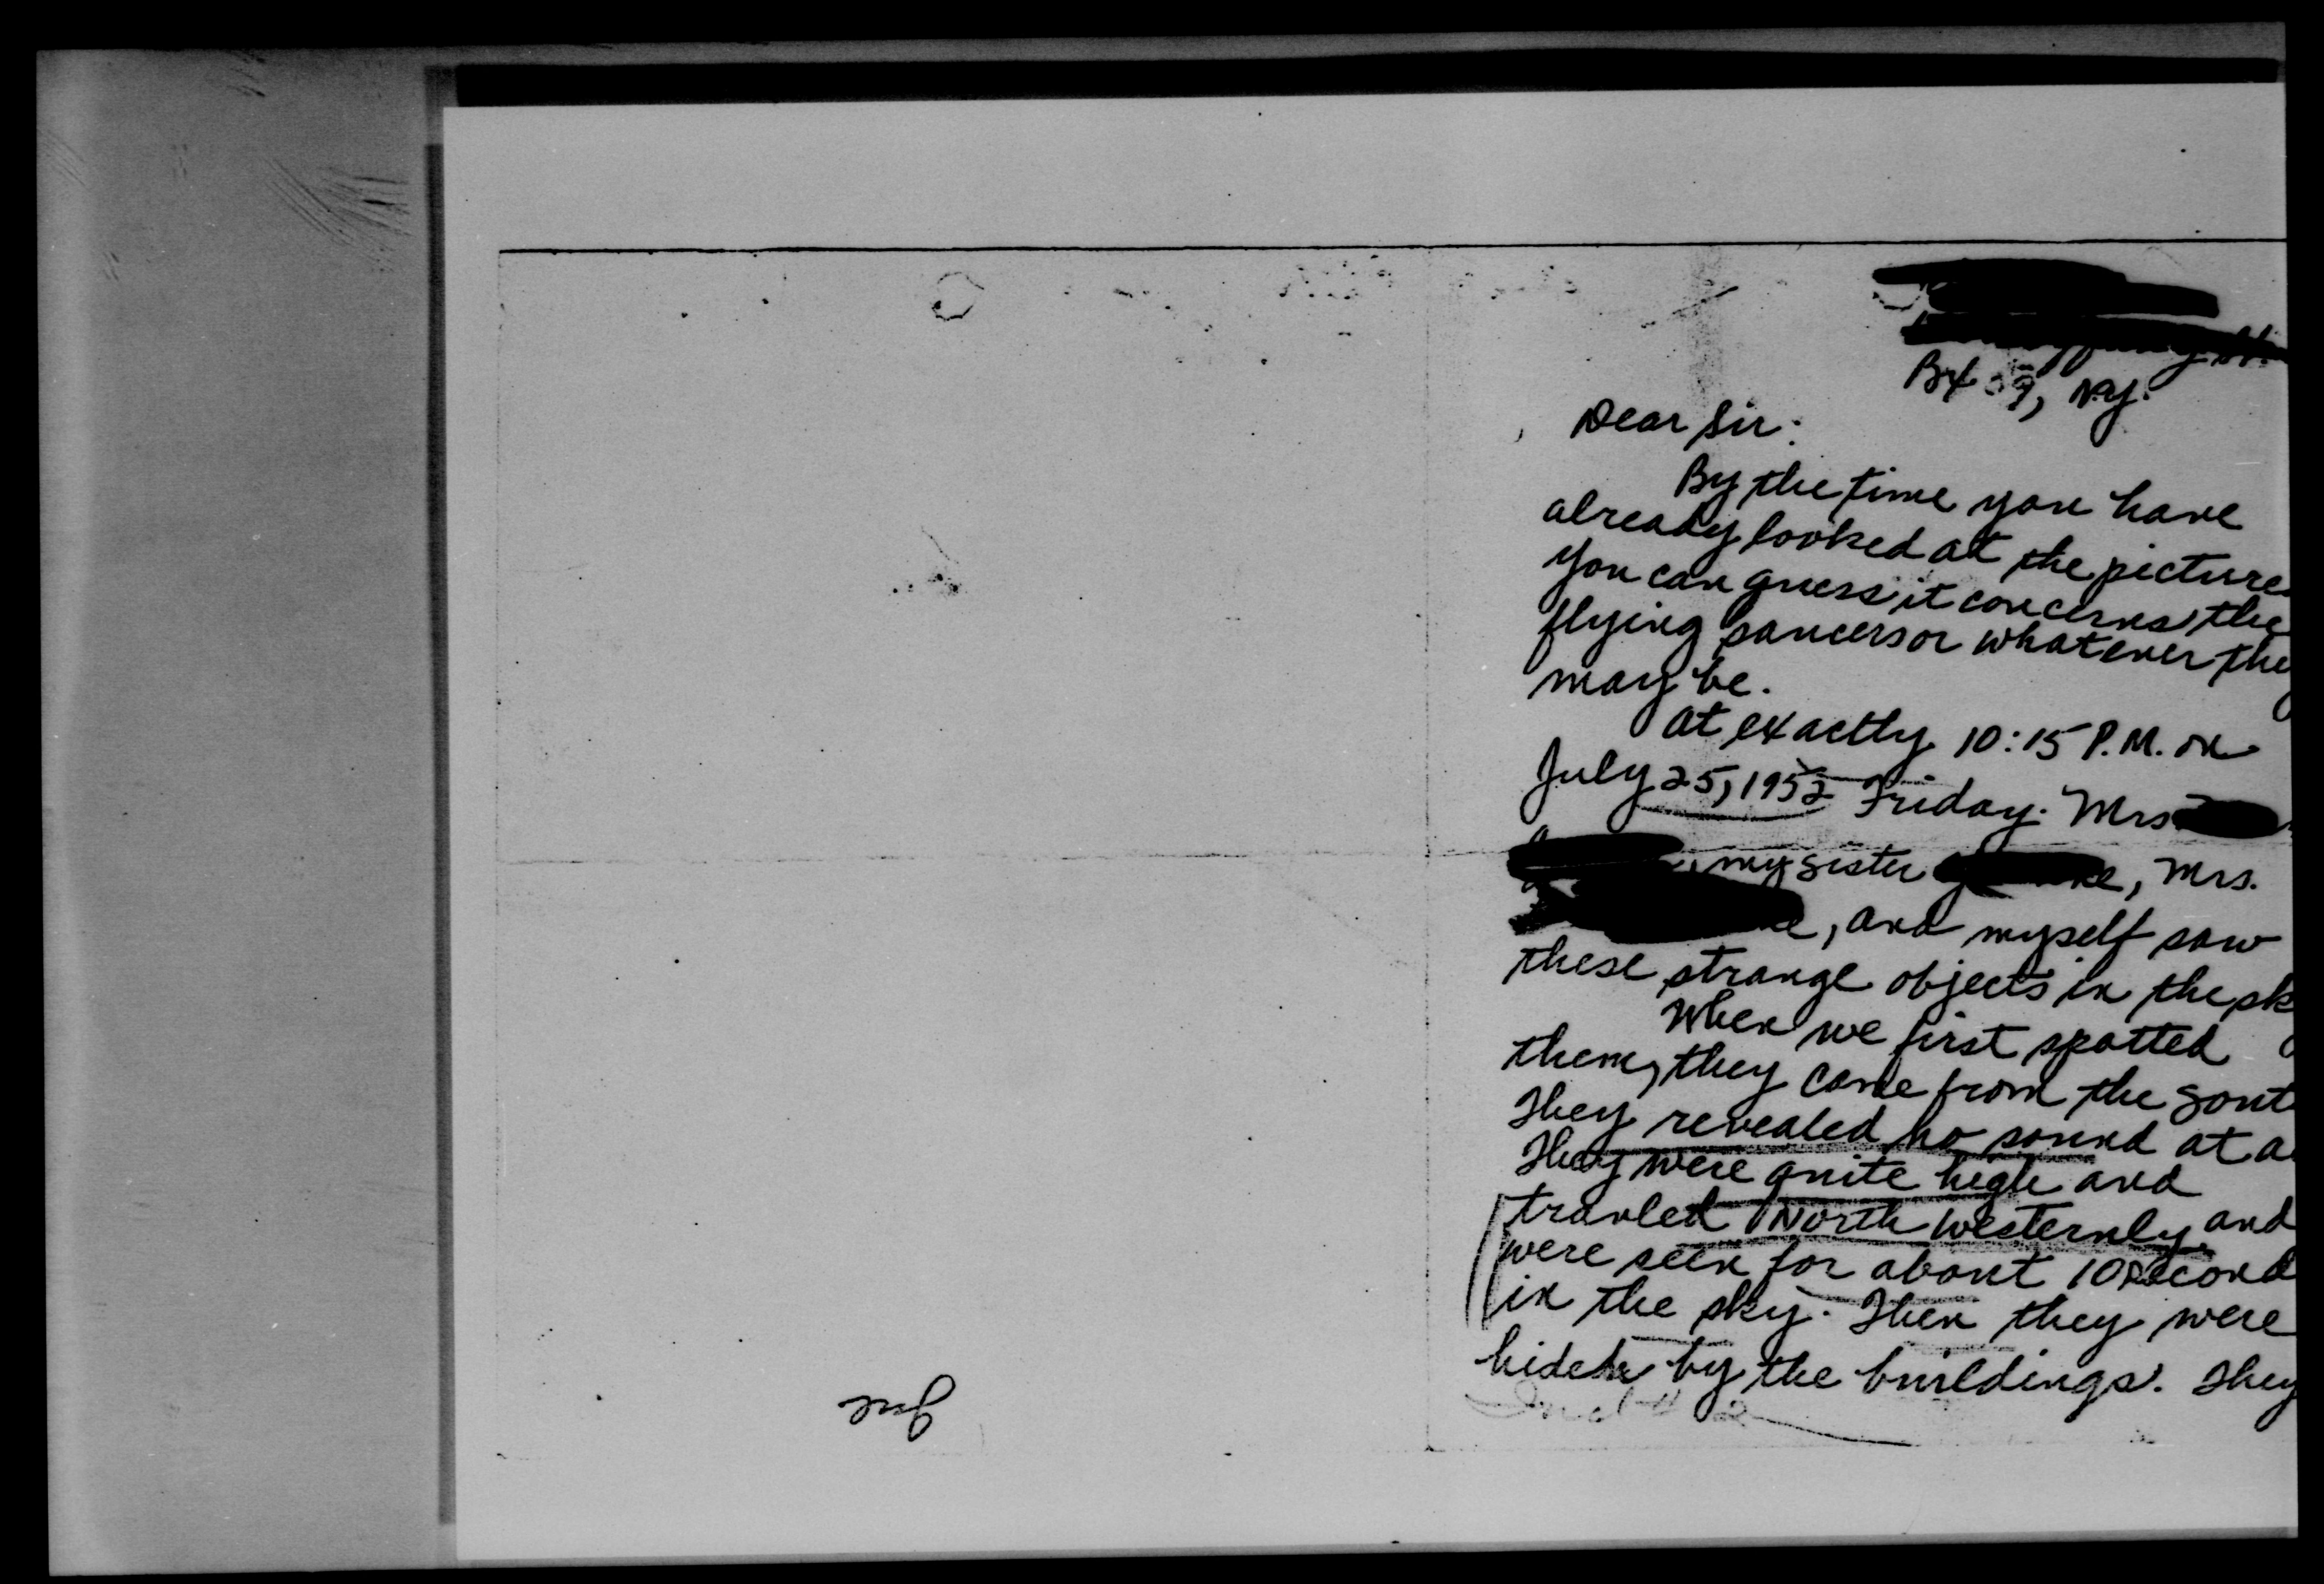 Bx 59, N.Y.
Dear Sir:
By the time you have
already looked at the picture
you can guess it concerns the
flying saucers or whatever the
may be.
at exactly 10:15 P.M. on
July 25, 1952 Friday. Mrs.
, my sister , Mrs.
, and myself saw
these strange objects in the sk
When we first spotted
them, they came from the sout
They revealed no sound at a
They were quite high and
travled North westernly and
were seen for about 10 second
in the sky. Then they were
hiden by the buildings. They